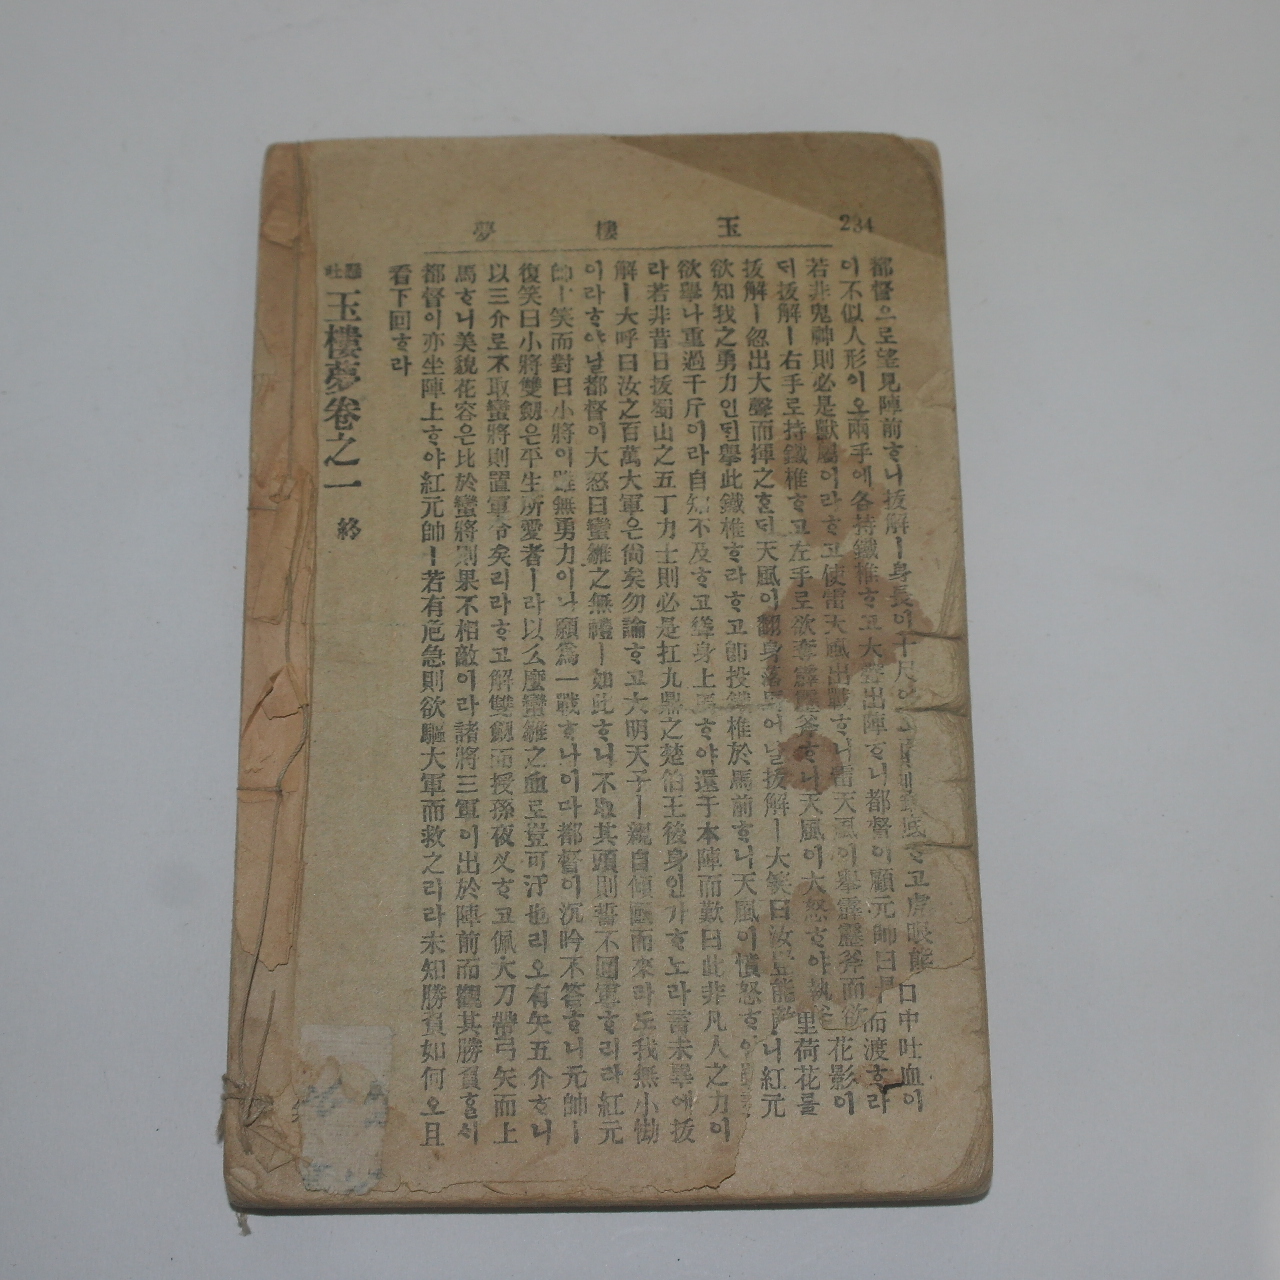 234 玉樓夢
都督으로望見陣前ᄒᆞ니拔解ㅣ身長이十尺이 ᄒᆞ고虎眼熊 口中吐血이
이不似人形이오兩手에各持鐵椎ᄒᆞ고大聲出陣ᄒᆞ니都督이顧元帥曰 而渡ᄒᆞ라
若非鬼神則必是獸屬이라ᄒᆞ고使雷天風出戰ᄒᆞ니雷天風이擧霹靂斧而欲 花影이
拔解ㅣ右手로持鐵椎ᄒᆞ고左手로欲奪霹靂斧ᄒᆞ니天風이大怒ᄒᆞ야執 里荷花를
拔解ㅣ忽出大聲而揮之ᄒᆞᆫ되天風이翻身落馬어날拔解ㅣ大笑曰汝豈能 니紅元
欲知我之勇力인된擧此鐵椎ᄒᆞ라ᄒᆞ고卽投鐵椎於馬前ᄒᆞ니天風이憤怒ᄒᆞ야
欲擧나重過千斤이라自知不及ᄒᆞ고聳身上馬ᄒᆞ야還于本陣而歎曰此非凡人之力이
라若非昔日拔蜀山之五丁力士則必是扛九鼎之楚伯王後身인가ᄒᆞ노라言未畢에拔
解ㅣ大呼曰汝之百萬大軍은尙矣勿論ᄒᆞ고大明天子ㅣ親自傾國而來라도我無小㤼
이라ᄒᆞ야날都督이大怒曰蠻雛之無禮ㅣ如此ᄒᆞ니不取其頭則誓不回軍ᄒᆞ리라紅元
帥ㅣ笑而對曰小將이雖無勇力이나願爲一戰ᄒᆞ나이다都督이沉吟不答ᄒᆞ니元帥ㅣ
復笑曰小將雙劒은平生所愛者ㅣ라以么麽蠻雛之血로豈可汗也리오有矢五介ᄒᆞ니
以三介로不取蠻將則置軍令矣리라ᄒᆞ고解雙劒而授孫夜叉ᄒᆞ고佩大刀帶弓矢而上
馬ᄒᆞ니美貌花容은比於蠻將則果不相敵이라諸將三軍이出於陣前而觀其勝負ᄒᆞᆯᄉᆡ
都督이亦坐陣上ᄒᆞ야紅元帥ㅣ若有危急則欲驅大軍而救之리라未知勝負如何오且
看下回ᄒᆞ라
懸吐 玉樓夢卷之一 終